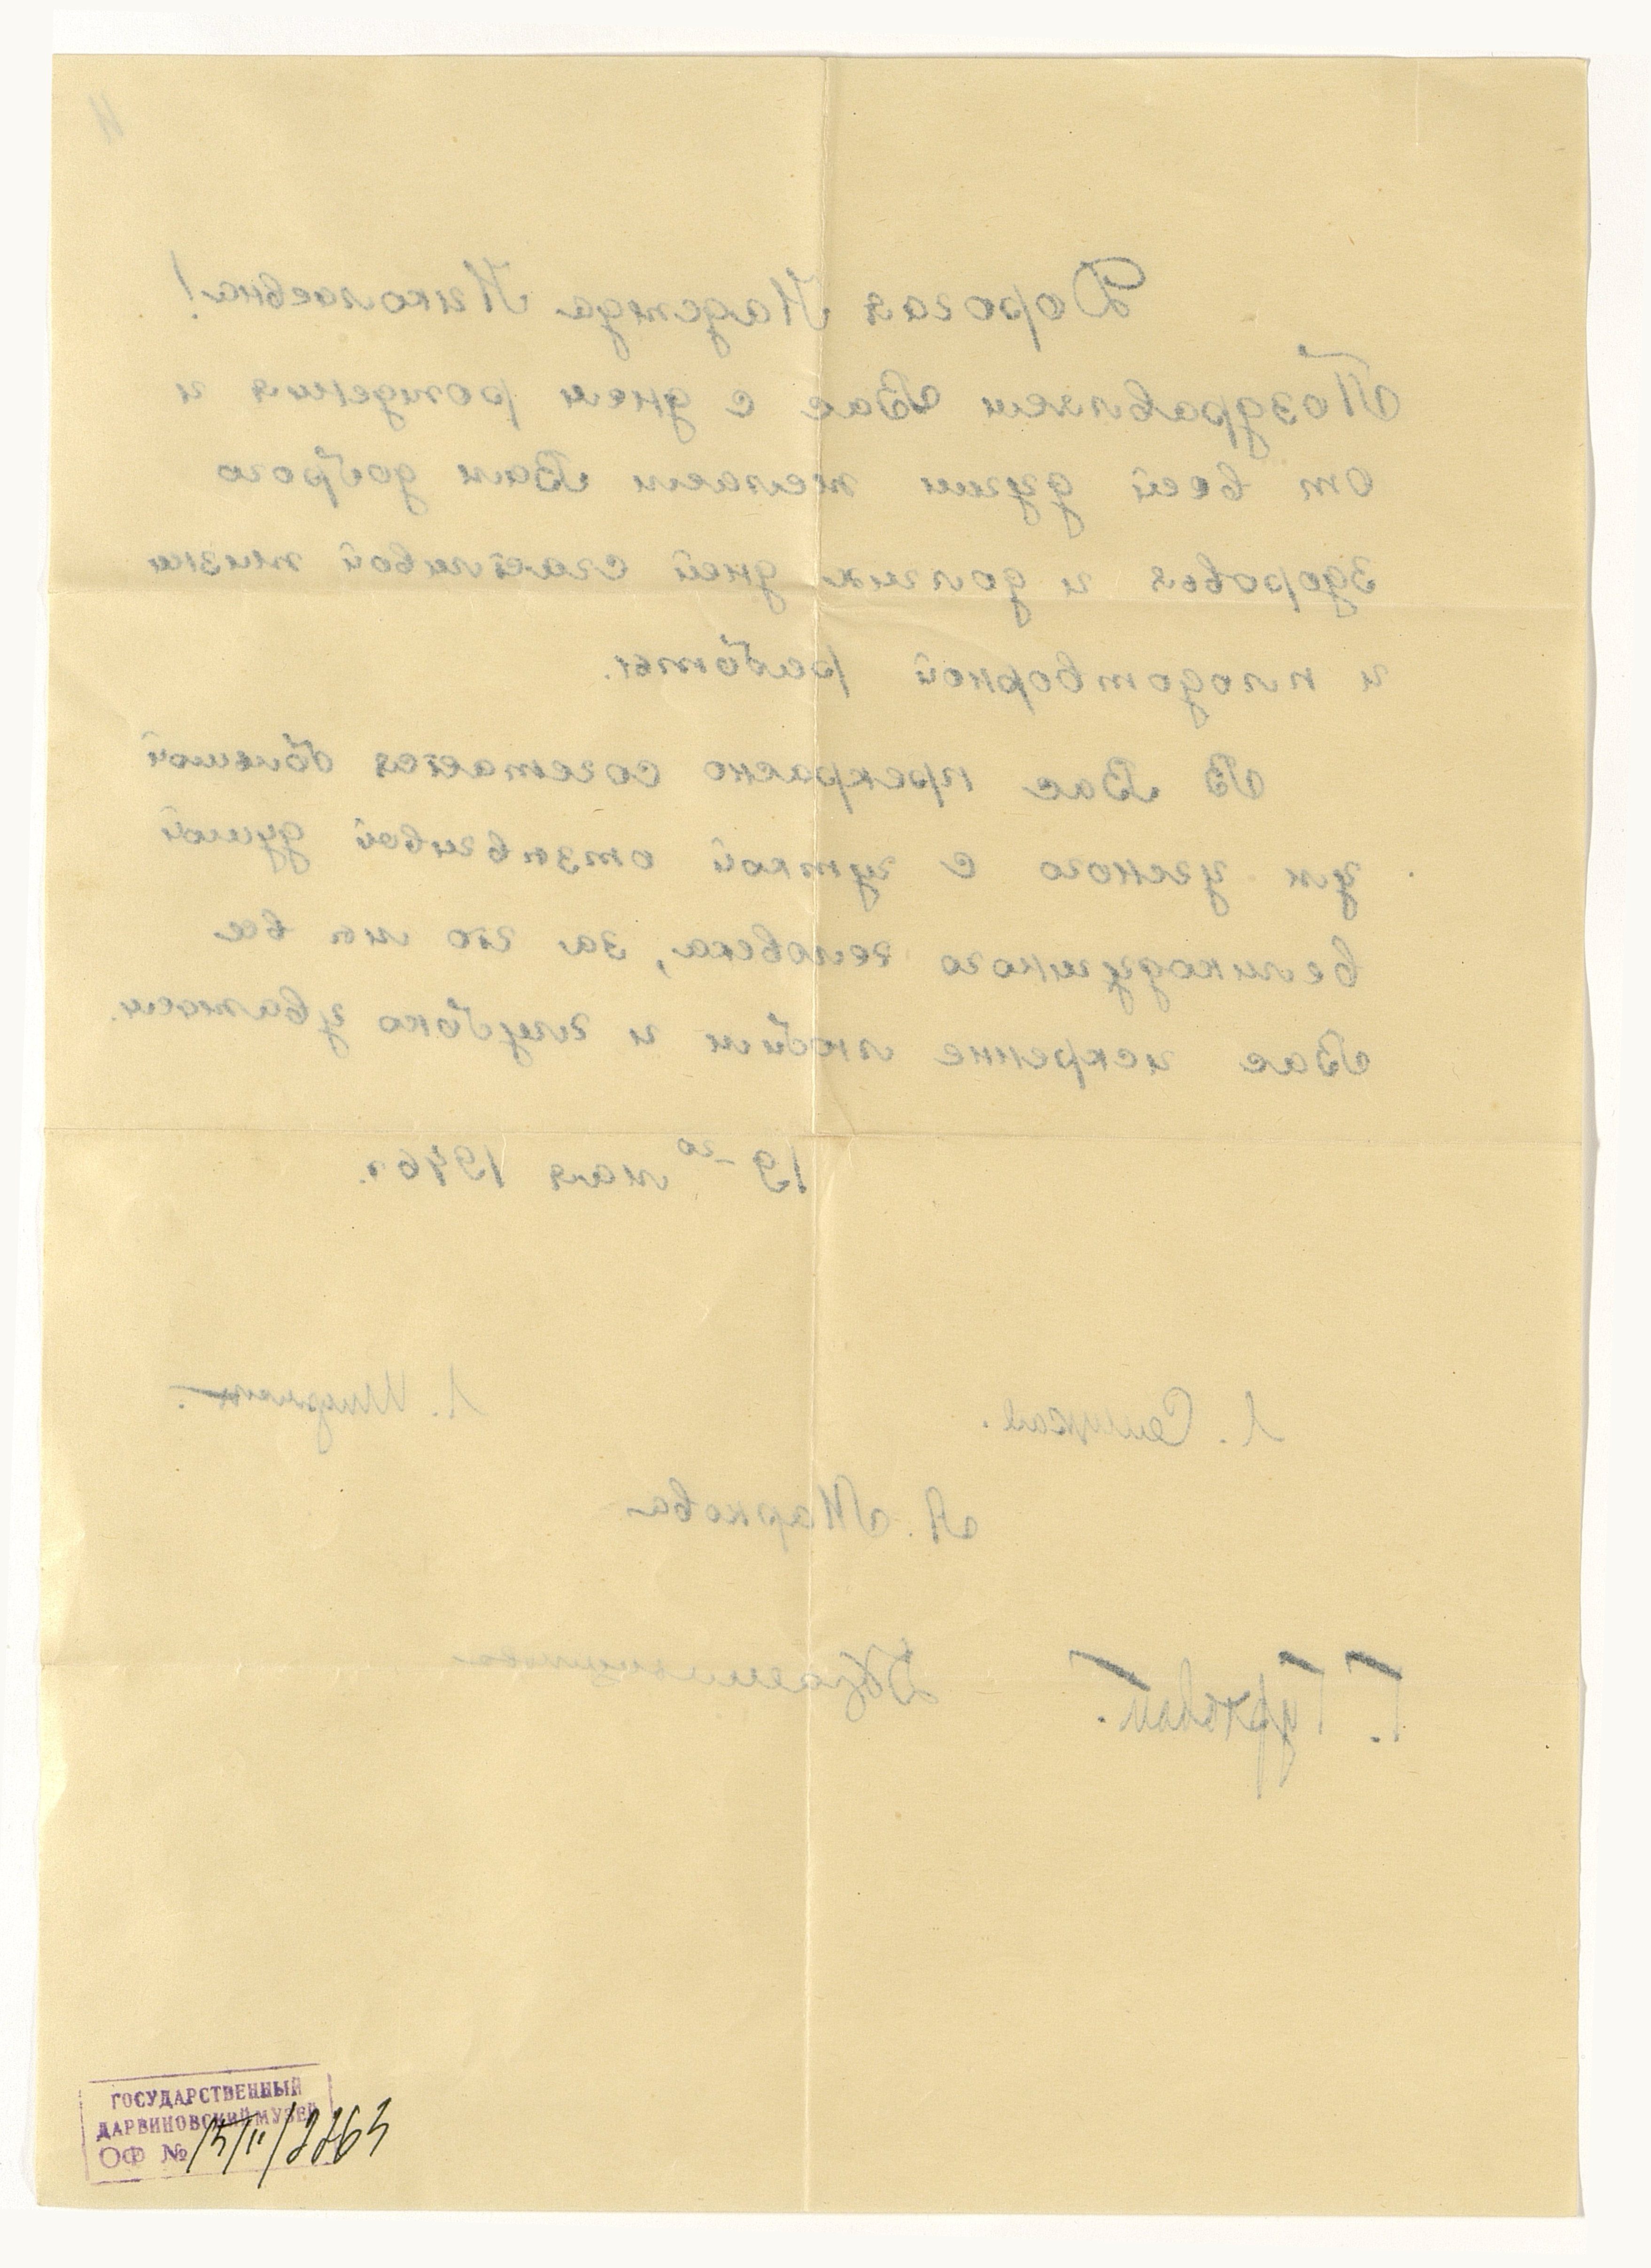 Дорогая Надежда Николаевна!
Поздравляем Вас с днем рождения и
от всей души желаем Вам доброго
здоровья и долгих дней счастливой жизни
и плодотворной работы.
В Вас прекрасно сочетается большой
ум ученого с чуткой отзывчивой душой
великодушного человека, за что мы все
Вас искренне любим и глубоко уважаем.
19-го мая 1946 г.
Л.
Л.
А. Маркова
Г.
ГОСУДАРСТВЕННЫЙ
ДАРВИНОВСКИЙ МУЗЕЙ
ОФ №